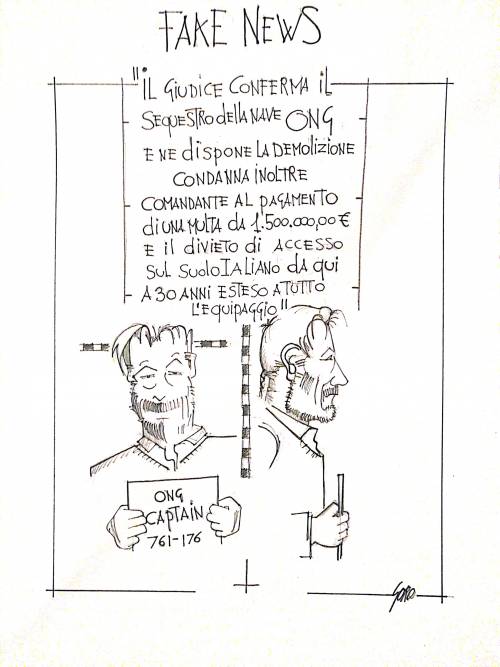 FAKE NEWS
"IL GIUDICE CONFERMA IL
SEQUESTRO DELLA NAVE ONG
E NE DISPONE LA DEMOLIZIONE
CONDANNA INOLTRE
COMANDANTE AL PAGAMENTO
di UNA MULTA DA 1.500.000,00 €
E il DIVIETO di ACCESSO
SUL SUOLO ITALIANO DA QUI
A 30 ANNI ESTESO A TUTTO
L'EQUIPAGGIO"
ONG
CAPTAIN
761-176